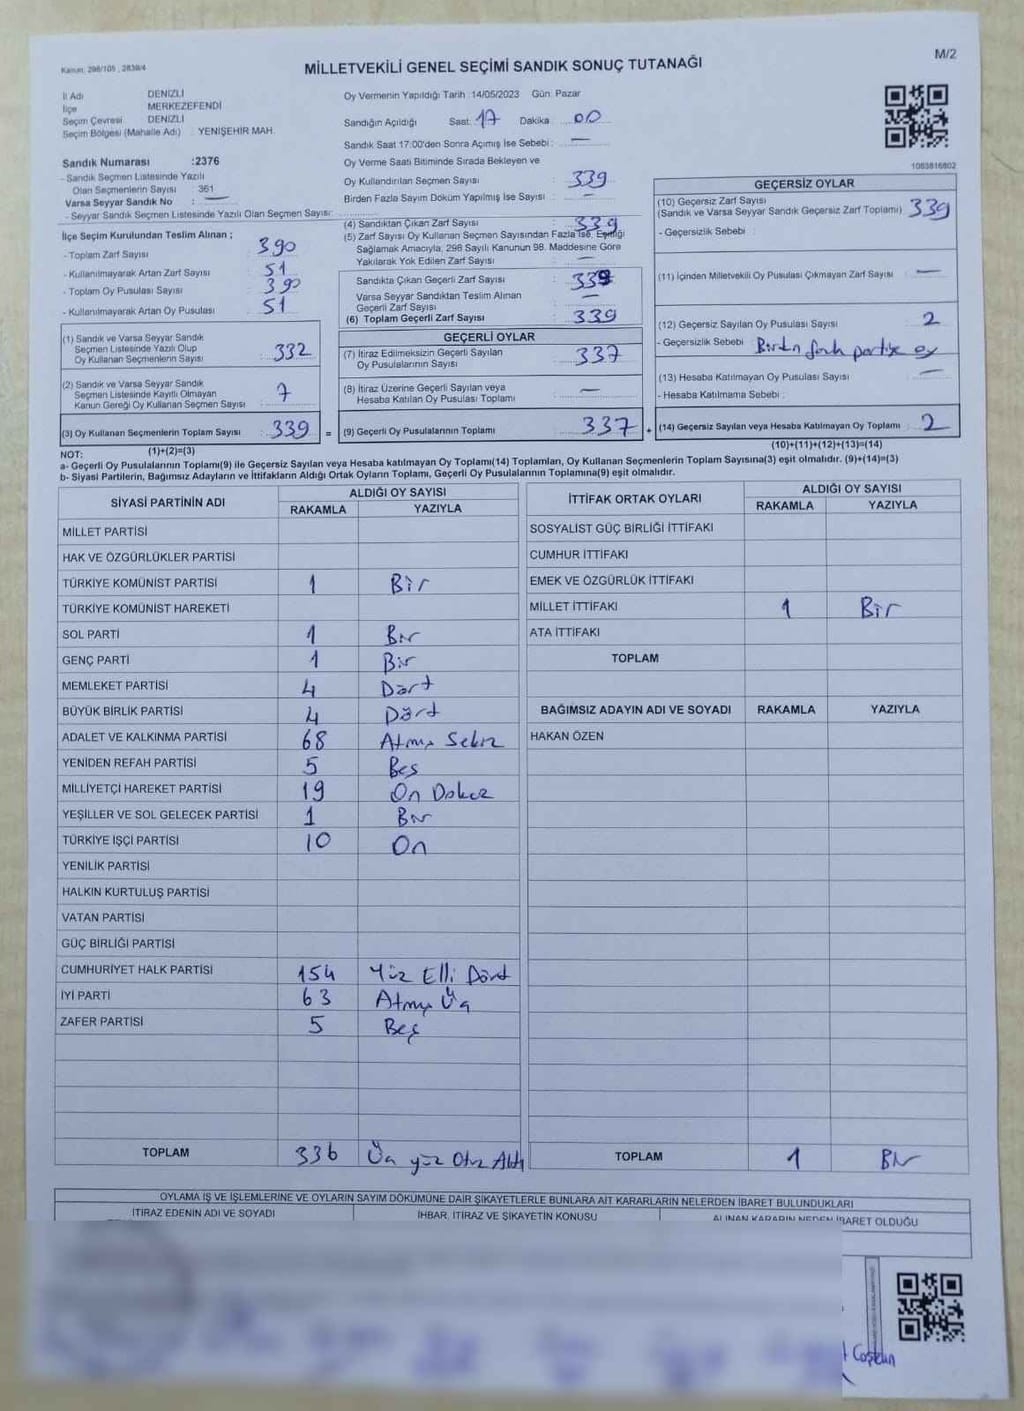 Kanun: 298/105 , 2839/4
MİLLETVEKİLİ GENEL SEÇİMİ SANDIK SONUÇ TUTANAĞI
M/2
İl Adı DENİZLİ
İlçe MERKEZEFENDİ
Seçim Çevresi DENİZLİ
Seçim Bölgesi (Mahalle Adı) : YENİŞEHİR MAH.
Oy Vermenin Yapıldığı Tarih :14/05/2023 Gün: Pazar
Sandığın Açıldığı Saat: 17 Dakika 00
Sandık Saat 17:00'den Sonra Açımış İse Sebebi : —
Oy Verme Saati Bitiminde Sırada Bekleyen ve
Oy Kullandırılan Seçmen Sayısı : 339
Birden Fazla Sayım Döküm Yapılmış İse Sayısı : —
1083816802
Sandık Numarası :2376
- Sandık Seçmen Listesinde Yazılı
Olan Seçmenlerin Sayısı 361
Varsa Seyyar Sandık No : —
- Seyyar Sandık Seçmen Listesinde Yazılı Olan Seçmen Sayısı:
İlçe Seçim Kurulundan Teslim Alınan ;
- Toplam Zarf Sayısı 390
- Kullanılmayarak Artan Zarf Sayısı 51
- Toplam Oy Pusulası Sayısı 390
- Kullanılmayarak Artan Oy Pusulası 51
(1) Sandık ve Varsa Seyyar Sandık
Seçmen Listesinde Yazılı Olup
Oy Kullanan Seçmenlerin Sayısı : 332
(2) Sandık ve Varsa Seyyar Sandık
Seçmen Listesinde Kayıtlı Olmayan
Kanun Gereği Oy Kullanan Seçmen Sayısı 7
(3) Oy Kullanan Seçmenlerin Toplam Sayısı : 339 =
(1)+(2)=(3)
(4) Sandıktan Çıkan Zarf Sayısı : 339
(5) Zarf Sayısı Oy Kullanan Seçmen Sayısından Fazla İse, Eşitliği
Sağlamak Amacıyla, 298 Sayılı Kanunun 98. Maddesine Göre
Yakılarak Yok Edilen Zarf Sayısı : —
Sandıkta Çıkan Geçerli Zarf Sayısı : 339
Varsa Seyyar Sandıktan Teslim Alınan
Geçerli Zarf Sayısı : —
(6) Toplam Geçerli Zarf Sayısı : 339
GEÇERLİ OYLAR
(7) İtiraz Edilmeksizin Geçerli Sayılan
Oy Pusulalarının Sayısı : 337
(8) İtiraz Üzerine Geçerli Sayılan veya
Hesaba Katılan Oy Pusulası Toplamı : —
(9) Geçerli Oy Pusulalarının Toplamı : 337 +
GEÇERSİZ OYLAR
(10) Geçersiz Zarf Sayısı
(Sandık ve Varsa Seyyar Sandık Geçersiz Zarf Toplamı) 339
- Geçersizlik Sebebi :
(11) İçinden Milletvekili Oy Pusulası Çıkmayan Zarf Sayısı : —
(12) Geçersiz Sayılan Oy Pusulası Sayısı : 2
- Geçersizlik Sebebi : Birden fazla partiye oy
(13) Hesaba Katılmayan Oy Pusulası Sayısı : —
- Hesaba Katılmama Sebebi :
(14) Geçersiz Sayılan veya Hesaba Katılmayan Oy Toplamı : 2
(10)+(11)+(12)+(13)=(14)
NOT:
a- Geçerli Oy Pusulalarının Toplamı(9) ile Geçersiz Sayılan veya Hesaba katılmayan Oy Toplamı(14) Toplamları, Oy Kullanan Seçmenlerin Toplam Sayısına(3) eşit olmalıdır. (9)+(14)=(3)
b- Siyasi Partilerin, Bağımsız Adayların ve İttifakların Aldığı Ortak Oyların Toplamı, Geçerli Oy Pusulalarının Toplamına(9) eşit olmalıdır.
SİYASİ PARTİNİN ADI ALDIĞI OY SAYISI
RAKAMLA YAZIYLA
MİLLET PARTİSİ
HAK VE ÖZGÜRLÜKLER PARTİSİ
TÜRKİYE KOMÜNİST PARTİSİ 1 Bir
TÜRKİYE KOMÜNİST HAREKETİ
SOL PARTİ 1 Bir
GENÇ PARTİ 1 Bir
MEMLEKET PARTİSİ 4 Dört
BÜYÜK BİRLİK PARTİSİ 4 Dört
ADALET VE KALKINMA PARTİSİ 68 Atmış Sekiz
YENİDEN REFAH PARTİSİ 5 Beş
MİLLİYETÇİ HAREKET PARTİSİ 19 On Dokuz
YEŞİLLER VE SOL GELECEK PARTİSİ 1 Bir
TÜRKİYE İŞÇİ PARTİSİ 10 On
YENİLİK PARTİSİ
HALKIN KURTULUŞ PARTİSİ
VATAN PARTİSİ
GÜÇ BİRLİĞİ PARTİSİ
CUMHURİYET HALK PARTİSİ 154 Yüz Elli Dört
İYİ PARTİ 63 Atmış Üç
ZAFER PARTİSİ 5 Beş
TOPLAM 336 Üç yüz Otuz Altı
İTTİFAK ORTAK OYLARI ALDIĞI OY SAYISI
RAKAMLA YAZIYLA
SOSYALİST GÜÇ BİRLİĞİ İTTİFAKI
CUMHUR İTTİFAKI
EMEK VE ÖZGÜRLÜK İTTİFAKI
MİLLET İTTİFAKI 1 Bir
ATA İTTİFAKI
TOPLAM
BAĞIMSIZ ADAYIN ADI VE SOYADI RAKAMLA YAZIYLA
HAKAN ÖZEN
TOPLAM 1 Bir
OYLAMA İŞ VE İŞLEMLERİNE VE OYLARIN SAYIM DÖKÜMÜNE DAİR ŞİKAYETLERLE BUNLARA AİT KARARLARIN NELERDEN İBARET BULUNDUKLARI
İTİRAZ EDENİN ADI VE SOYADI İHBAR, İTİRAZ VE ŞİKAYETİN KONUSU ALINAN KARARIN NEDEN İBARET OLDUĞU
Coşkun